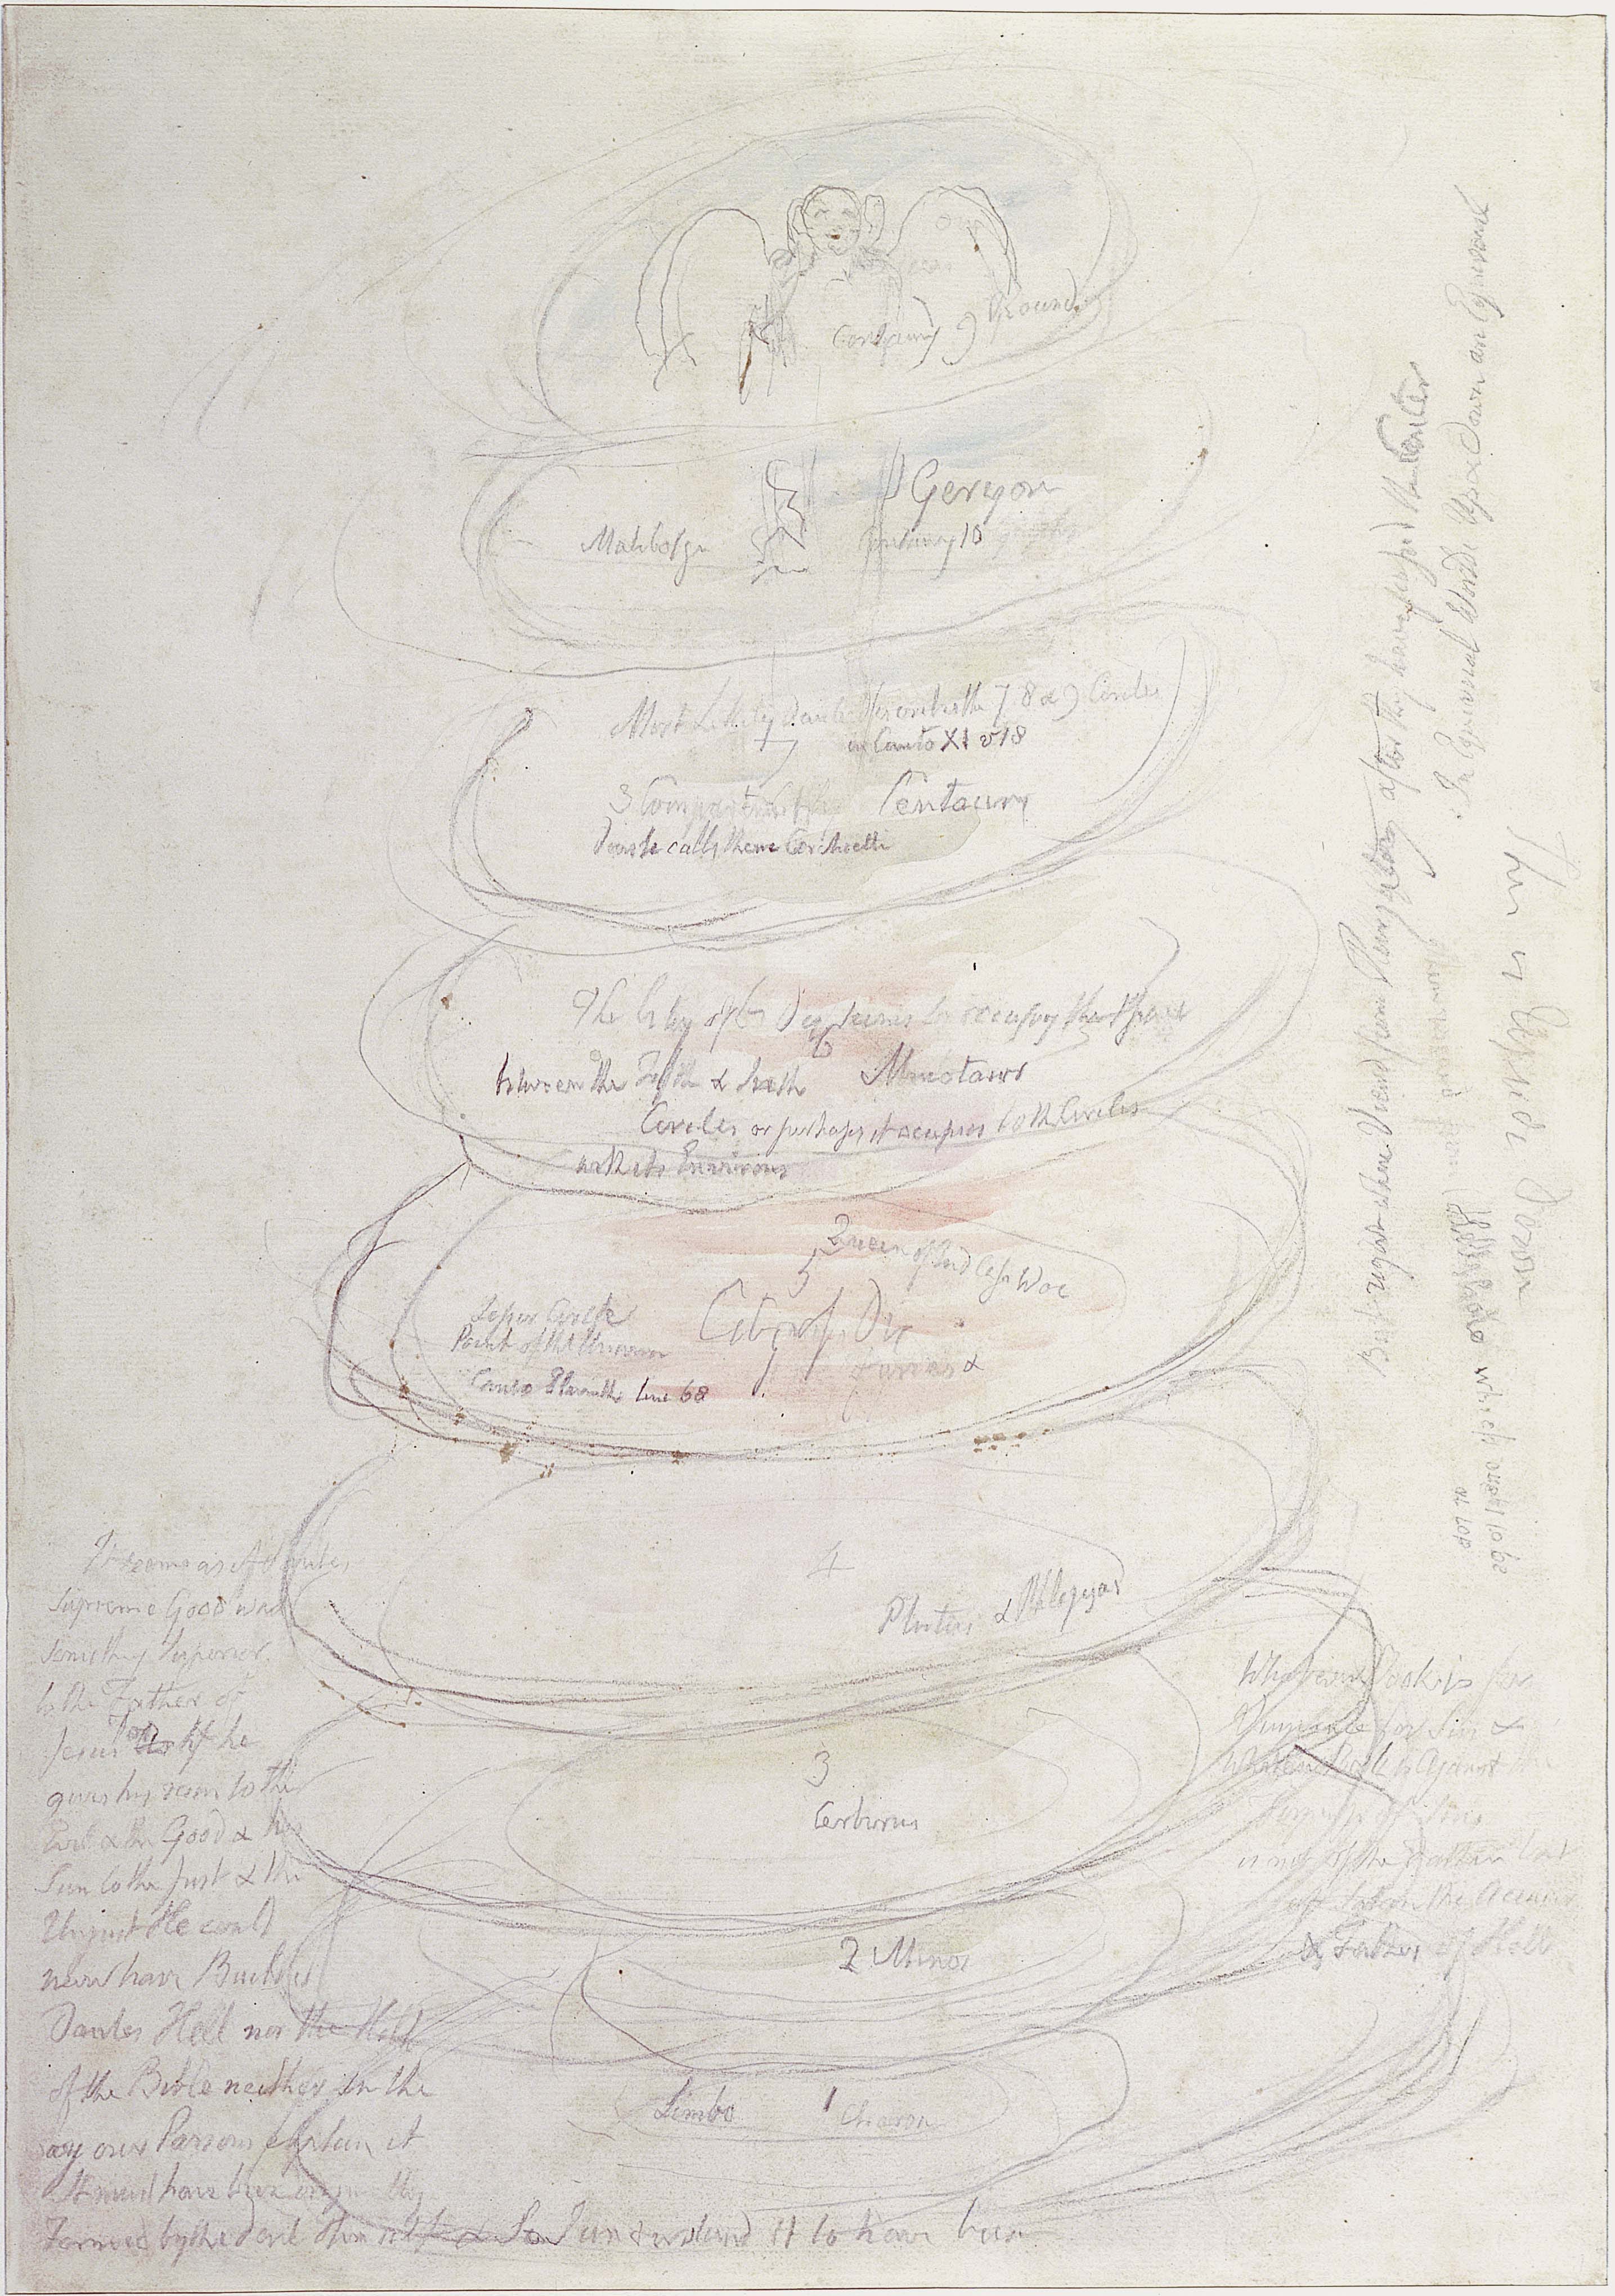 containing 9 Rounds
Geryon
Malebolge containing 10
Most Likely Dante describes the 7 8 & 9 Circles
in Canto XI v 18
7
3 Compartments Centaurs
Dante calls them Cerchietti
The City of Dis seems to occupy the Space
6
between the Fifth & Sixth Minotaur
Circles or perhaps it occupies both Circles
with its Environs
Queen of Endless Woe
5
Lesser Circle
Point of the Universe
Canto Eleventh line 68
City of Dis
furies &
4
Plutus & Phlegyas
3
Cerberus
2 Minos
Limbo 1 Charon
It seems as if Dantes
supreme Good was
something Superior
to the Father of
Jesus for if he
gives his rain to the
Evil & the Good & his
Sun to the Just & the
Unjust He could
never have Builded
Dantes Hell nor the Hell
of the Bible neither in the
way our Parsons explain it
It must have been originally
Formed by the devil Him self & So I understand it to have been
Whatever Book is for
Vengeance for Sin &
Whatever Book is Against the
Forgiveness of Sins
is not of the Father but
of Satan the Accuser
& Father of Hell
This is Upside Down
When viewd from Hells Gate
But right When Viewd from Purgatory after they have passed the Center
In Equivocal Worlds Up & Down are Equivocal